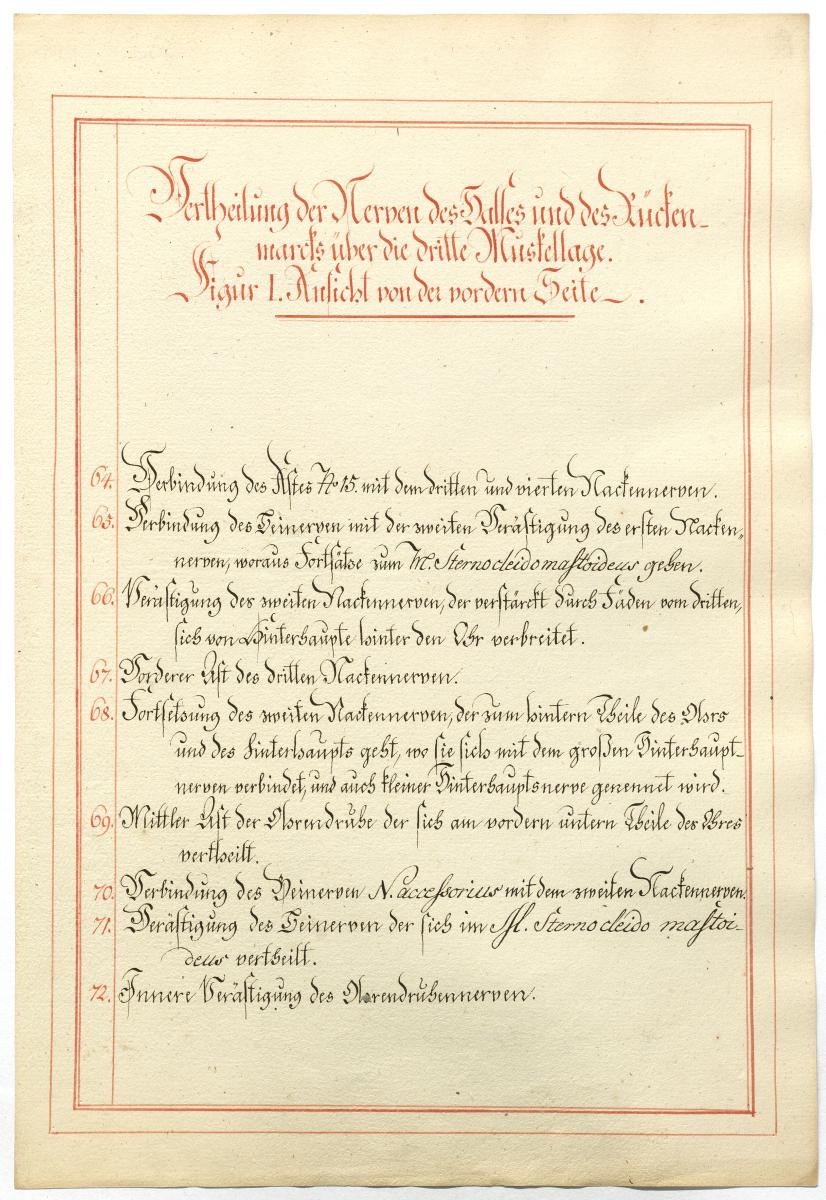 Vertheilung der Nerven des Halses und des Rücken-
marcks über die dritte Muskellage.
Figur I. Ansicht von der vordern Seite.
64. Verbindung des Astes No 15. mit dem dritten und vierten Nackennerven.
65. Verbindung des Beinerven mit der zweiten Verästigung des ersten Nacken-
nerven, woraus Fortsätze zum M. Sternocleidomastoideus gehen.
66. Verästigung des zweiten Nackennerven, der verstärckt durch Fäden vom dritten,
sich von Hinterhaupte hinter den Ohr verbreitet.
67. Vorderer Ast des dritten Nackennerven.
68. Fortsetsung des zweiten Nackennerven, der zum hintern Theile des Ohrs
und des hinterhaupts geht, wo sie sich mit dem großen Hinterhaupt-
nerven verbindet, und auch kleiner Hinterhauptsnerve genennet wird.
69. Mittler Ast der Ohrendruhe der sich am vordern untern Theile des Ohres
vertheilt.
70. Verbindung des Beinerven N. accessorius mit dem zweiten Nackennerven.
71. Verästigung des Beinerven der sich im M. Sternocleido mastoi-
deus vertheilt.
72. Innere Verästigung des Ohrendruhennerven.